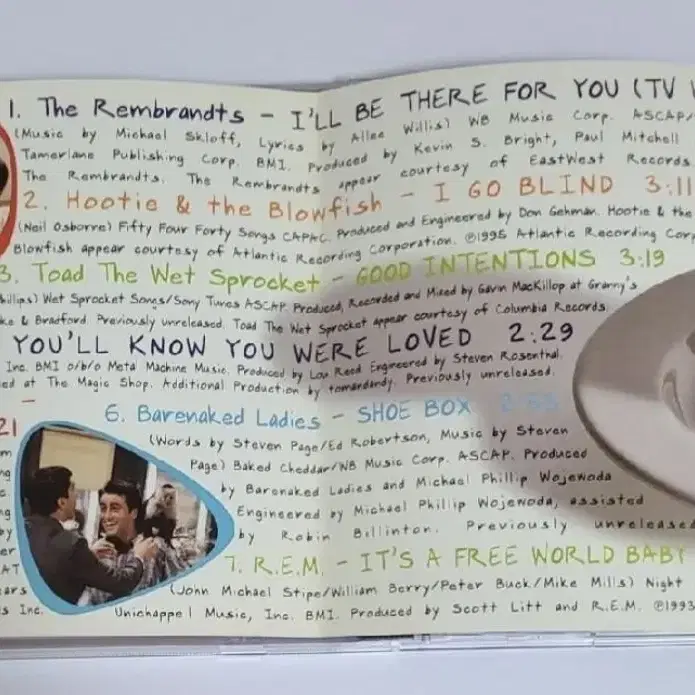 1. The Rembrandts - I'LL BE THERE FOR YOU (TV
(Music by Michael Skloff, Lyrics by Allee Willis) WB Music Corp. ASCAP/
Tamerlane Publishing Corp. BMI. Produced by Kevin S. Bright, Paul Mitchell
The Rembrandts. The Rembrandts appear courtesy of EastWest Records
2. Hootie & the Blowfish - I GO BLIND 3:11
(Neil Osborne) Fifty Four Forty Songs CAPAC. Produced and Engineered by Don Gehman. Hootie & the
Blowfish appear courtesy of Atlantic Recording Corporation. ℗1995 Atlantic Recording Cor
3. Toad The Wet Sprocket - GOOD INTENTIONS 3:19
hillips) Wet Sprocket Songs/Sony Tunes ASCAP. Produced, Recorded and Mixed by Gavin MacKillop at Granny's
ke & Bradford. Previously unreleased. Toad The Wet Sprocket appear courtesy of Columbia Records.
YOU'LL KNOW YOU WERE LOVED 2:29
Inc. BMI o/b/o Metal Machine Music. Produced by Lou Reed Engineered by Steven Rosenthal.
ed at The Magic Shop. Additional Production by tomandandy. Previously unreleased.
21
6. Barenaked Ladies - SHOE BOX
(Words by Steven Page/Ed Robertson, Music by Steven
Page) Baked Cheddar/WB Music Corp. ASCAP. Produced
by Barenaked Ladies and Michael Phillip Wojewoda
Engineered by Michael Phillip Wojewoda, assisted
by Robin Billinton. Previously unreleased
7. R.E.M. - IT'S A FREE WORLD BABY
(John Michael Stipe/William Berry/Peter Buck/Mike Mills) Night
Unichappel Music, Inc. BMI. Produced by Scott Litt and R.E.M. ℗1993
m
ng
c.
ng
by
er
AT
ears
s Inc.